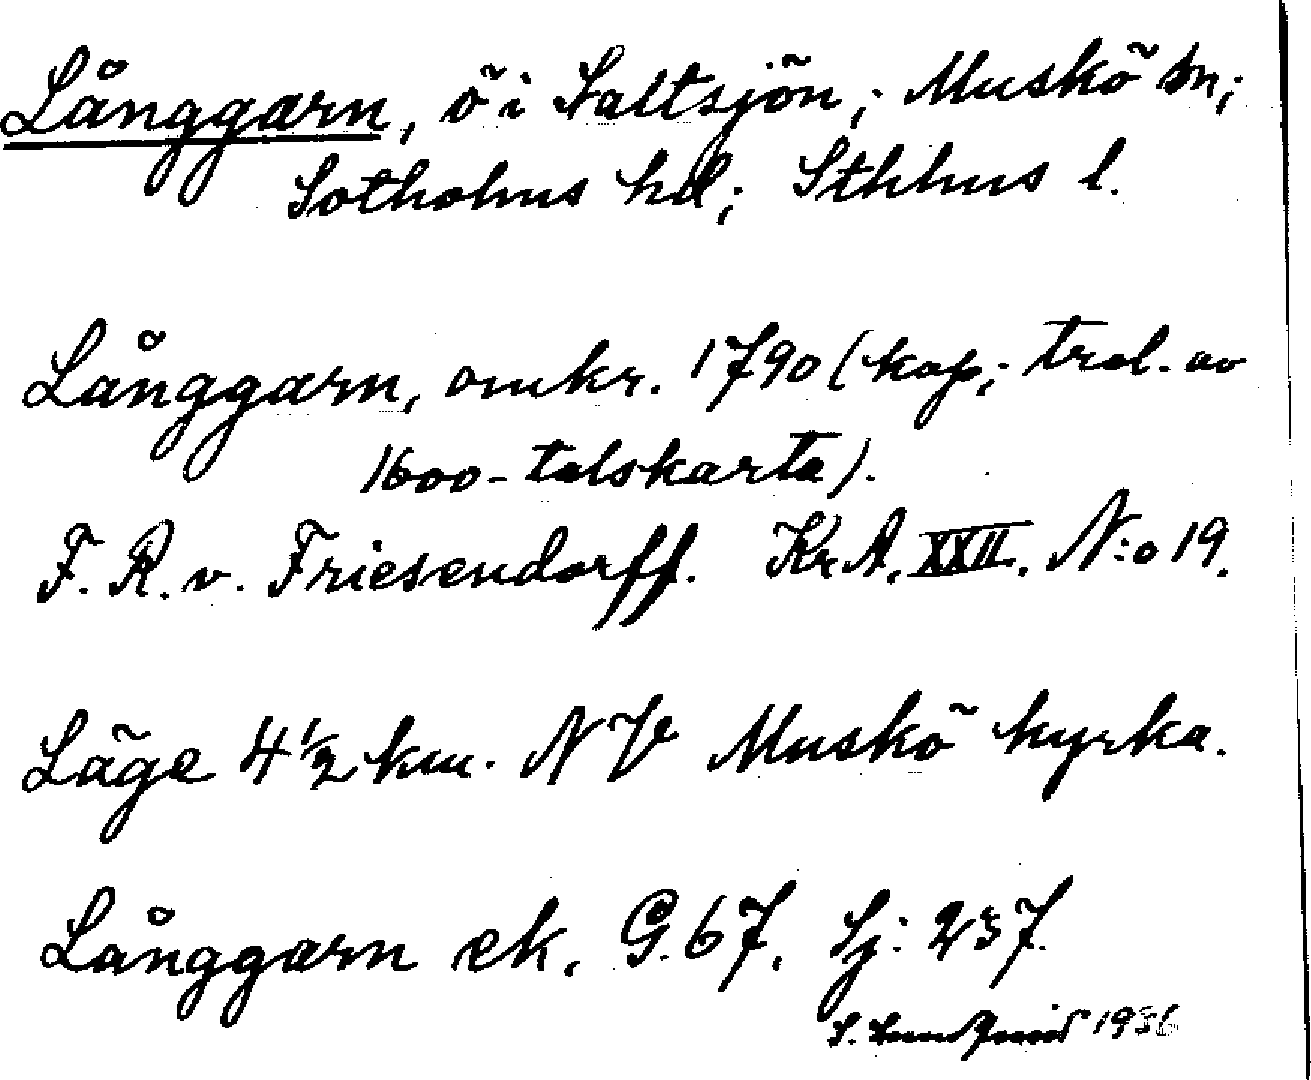 Långgarn, ö i Saltsjön; Muskö sn;
Sotholms hd; Sthlms l.
Långgarn, omkr. 1790 (kop; trol. av
1600-talskarta).
F. R. v. Friesendorff. Kr.A. XXII. N:o 19.
Läge 4 ½ km. NV Muskö kyrka.
Långgarn ek. G. 67. Sj: 237.
S. Lundqvist 1936